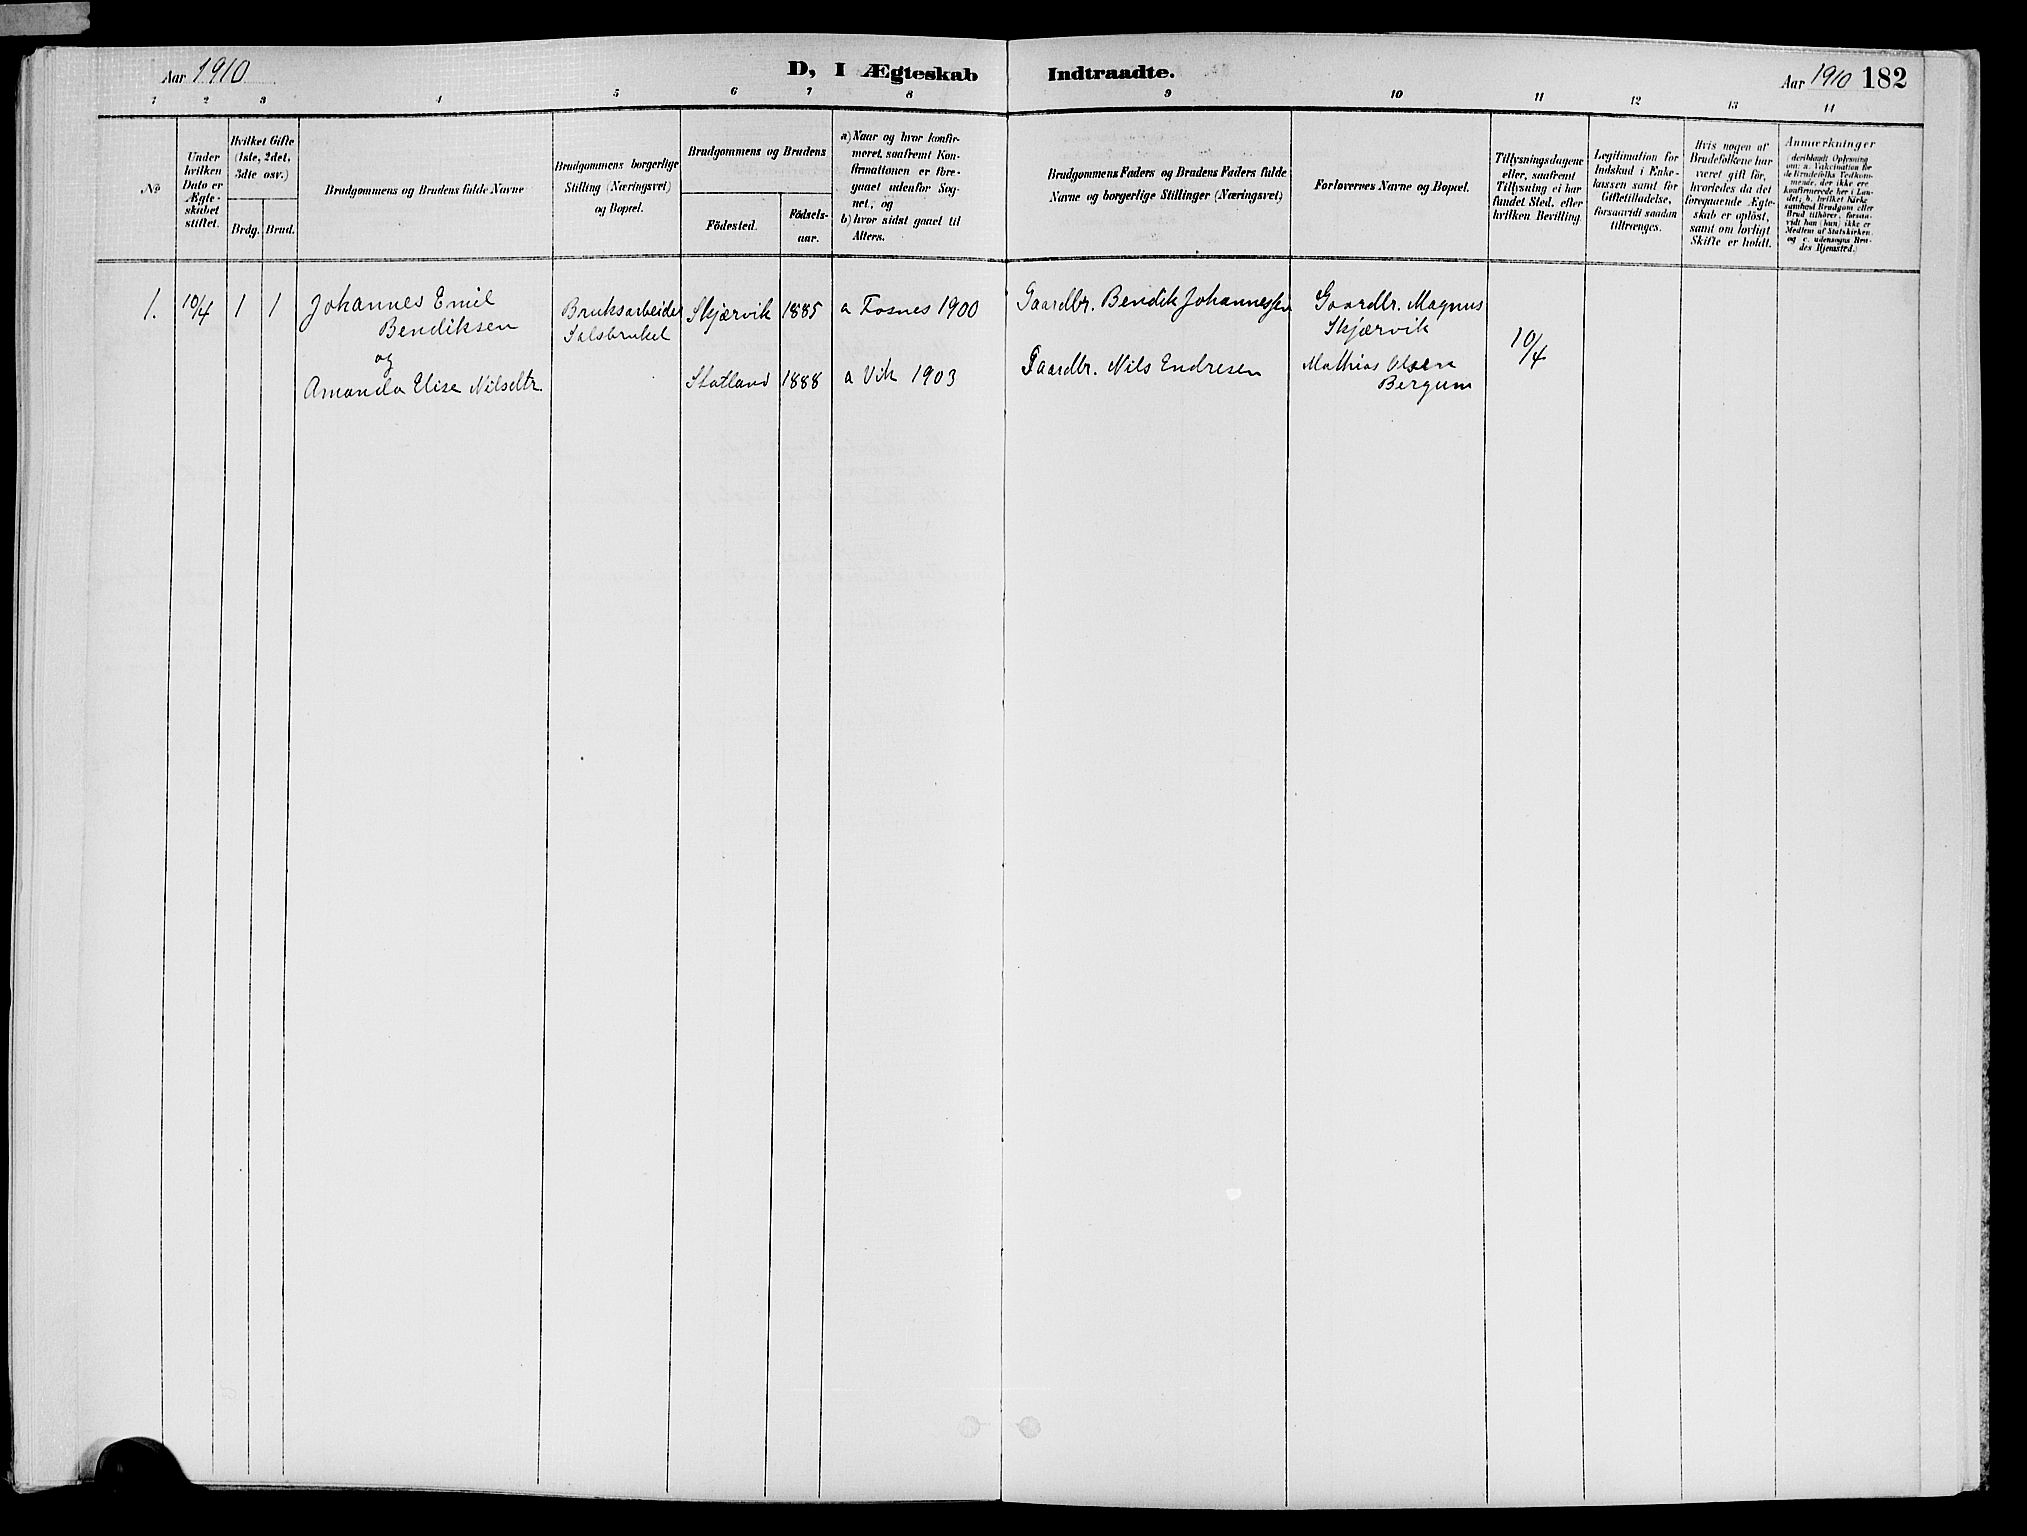 Aar 1910
D, I Ægteskab Indtraadte.
Aar 1910 182
1 2 3 4 5 6 7 8 9 10 11 12 13 14
No
Under
hvilken
Dato er
Ægte-
skabet
stiftet.
Hvilket Gifte
(1ste, 2det,
3die osv.)
Brdg. Brud.
Brudgommens og Brudens fulde Navne
Brudgommens borgerlige
Stilling (Næringsvei)
og Bopæl.
Brudgommens og Brudens
Födested.
Födsels-
aar.
a) Naar og hvor konfir-
meret, saafremt Kon-
firmationen er fore-
gaaet udenfor Sog-
net, og
b) hvor sidst gaaet til
Alters.
Brudgommens Faders og Brudens Faders fulde
Navne og borgerlige Stillinger (Næringsvei)
Forlovernes Navne og Bopæl.
Tillysningsdagene
eller, saafremt
Tillysning ei har
fundet Sted, efter
hvilken Bevilling.
Legitimation for
Indskud i Enke-
kassen samt for
Giftetilladelse,
forsaavidt saadan
tiltrænges.
Hvis nogen af
Brudefolkene har
været gift för,
hvorledes da det
foregaaende Ægte-
skab er oplöst,
samt om lovligt
Skifte er holdt.
Anmærkninger
deriblandt Oplysning
om: a. Vakcination for
de Brudefolks Vedkom-
mende, der ikke ere
konfirmerede her i Lan-
det; b. hvilket Kirke
samfund Brudgom eller
Brud tilhörer, forsaa-
vidt han (hun) ikke er
Medlem af Statskirken,
og c. udensogns Bru-
des Hjemsted.
1. 10/4 1 1 Johannes Emil
Bendiksen
Bruksarbeider
Salsbruket
Skjærvik 1885 a Fosnes 1900 Gaardbr. Bendik Johannessen Gaardbr. Magnus
Skjærvik
10/4
og
Amanda Elise Nilsdtr. Statland 1888 a Vik 1903 Gaardbr. Nils Endresen Mathias Olsen
Bergum